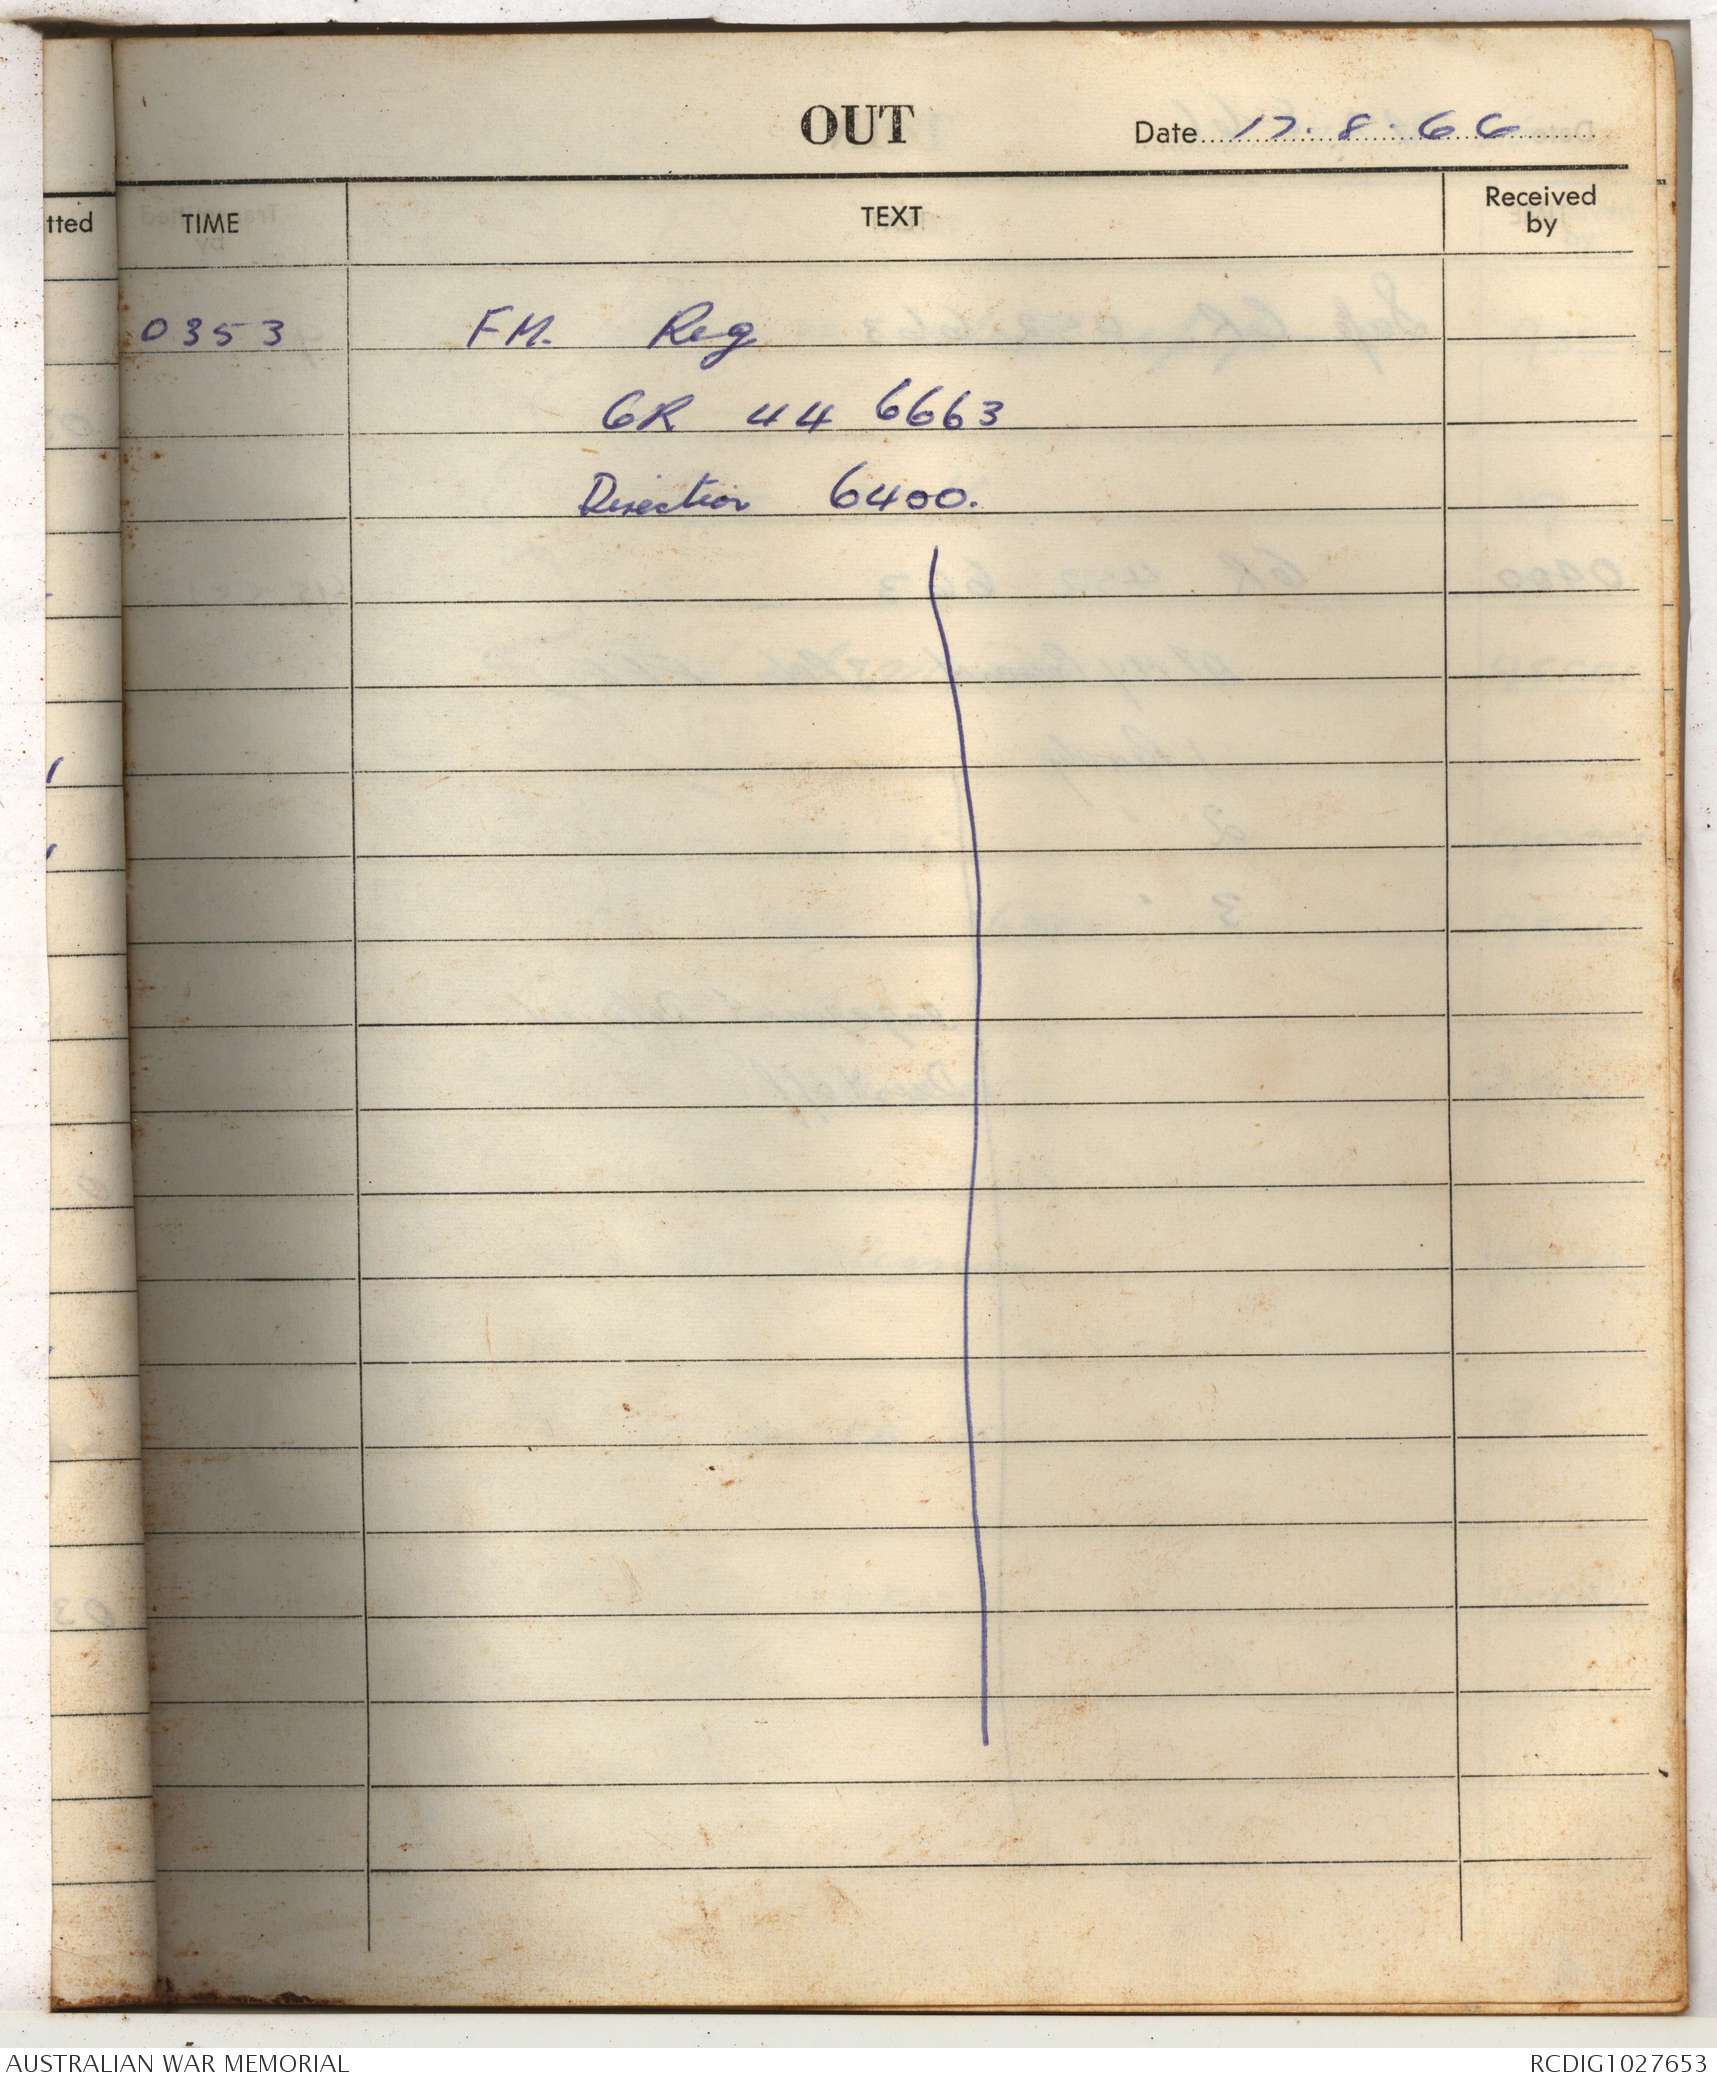 OUT
Date 17.8.66
tted
TIME
TEXT
Received
by
0353 FM. Reg
GR 44 6663
Direction 6400.
AUSTRALIAN WAR MEMORIAL
RCDIG1027653